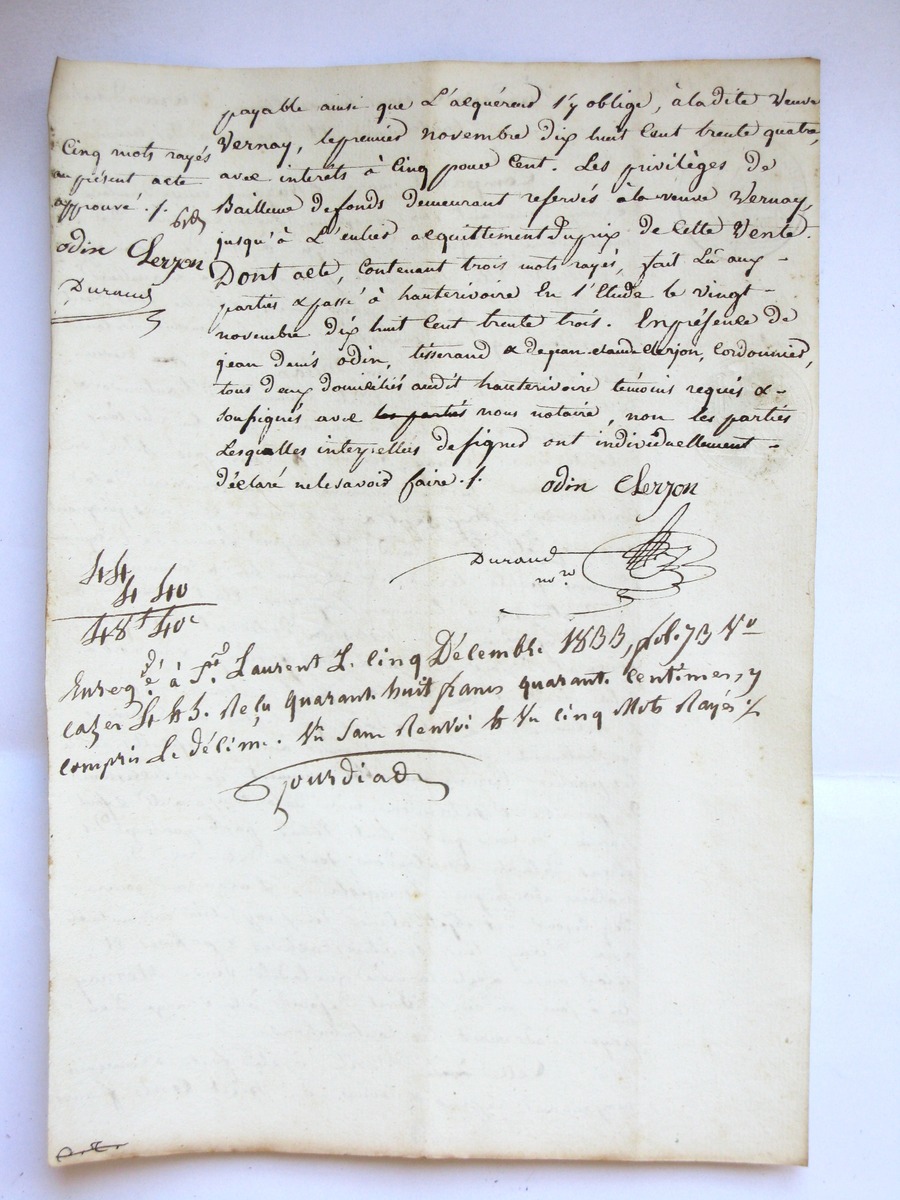 payable ainsi que L'acquéreur s'y oblige, à ladite Veuve
Vernay, le premier novembre dix huit Cent trente quatre,
avec interets à Cinq pour Cent. Les privilèges de
Bailleur de fonds demeurant reservés à la veuve Vernay,
jusqu'à L'entier acquittement du prix de Cette Vente.
Dont acte, Contenant trois mots rayés, fait Lû aux
parties & passé à hauterivoire En l'Etude le vingt
novembre dix huit Cent trente trois. En présence de
jean denis odin, tisserand & de jean claude Clerjon, Cordonnier,
tous deux domiciliés audit hauterivoire témoins requis &
soussignés avec les parties nous notaire, non les parties
Lesquelles interpellées de signer ont individuellement
déclaré ne le savoir faire ./.
odin Clerjon
Durand
no.re
Cinq mots rayés
au présent acte
approuvé ./.
odin Clerjon
Durand
44
4 40
48f 40c
Enregé à St. Laurent L. cinq Décembre 1833, fol. 73 Vo
cazes 4 & 5. Reçu quarante huit francs quarante Centimes, y
compris Le décime. Vû Sans Renvoi & Vu cinq Mots Rayés ./.
Jourdiad